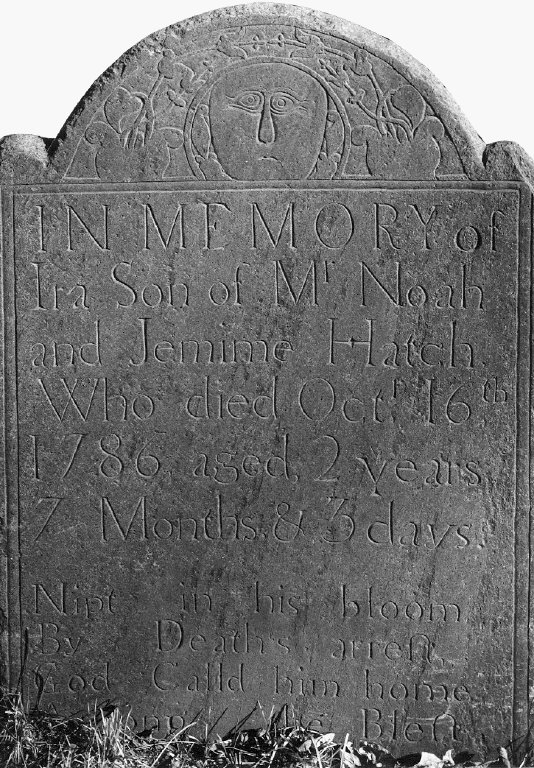 IN MEMORY of
Ira Son of Mr Noah
and Jemime Hatch
Who died Octr 16th
1786 aged 2 years
7 Months & 3 days.
Nipt in his bloom
By Death's arreſt
God Calld him home
Among the Bleſt